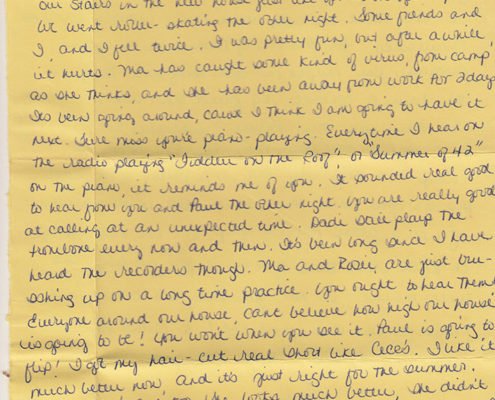 our stairs in the new house just
We went roller-skating the other night. Some friends and
I, and I fell twice. I was pretty fun, but after a while
it hurts. Ma has caught some kind of virus, from camp
as she thinks, and she has been away from work for 2 days
Its been going around, cause I think I am going to have it
next. Sure miss you're piano-playing. Everytime I hear on
the radio playing "Fiddler on the Roof" or "Summer of 42"
on the piano, it reminds me of you. It sounded real good
to hear from you and Paul the other night. You are really good
at calling at an unexpected time. Dad still plays the
trombone every now and then. It's been long since I have
heard the recorders though. Ma and Rosie, are just bru-
shing up on a long time practice. You ought to hear them!
Everyone around our house, can't believe how high our house
is going to be! You won't when you see it. Paul is going to
flip! I got my hair-cut real short like Cece's. I like it
much better now and it's just right for the summer.
looks much better, she didn't